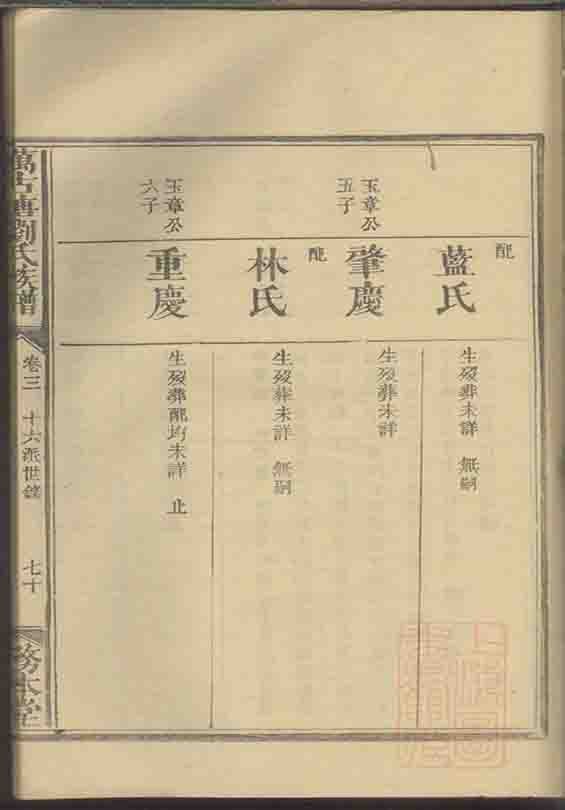 配
藍氏
生歿葬未詳 無嗣
玉章公
五子
肇慶
生歿葬未詳
配
林氏
生歿葬未詳 無嗣
玉章公
六子
重慶
生歿葬配均未詳 止
萬古塘劉氏族譜
卷三 十六派世錄
七十
務本堂